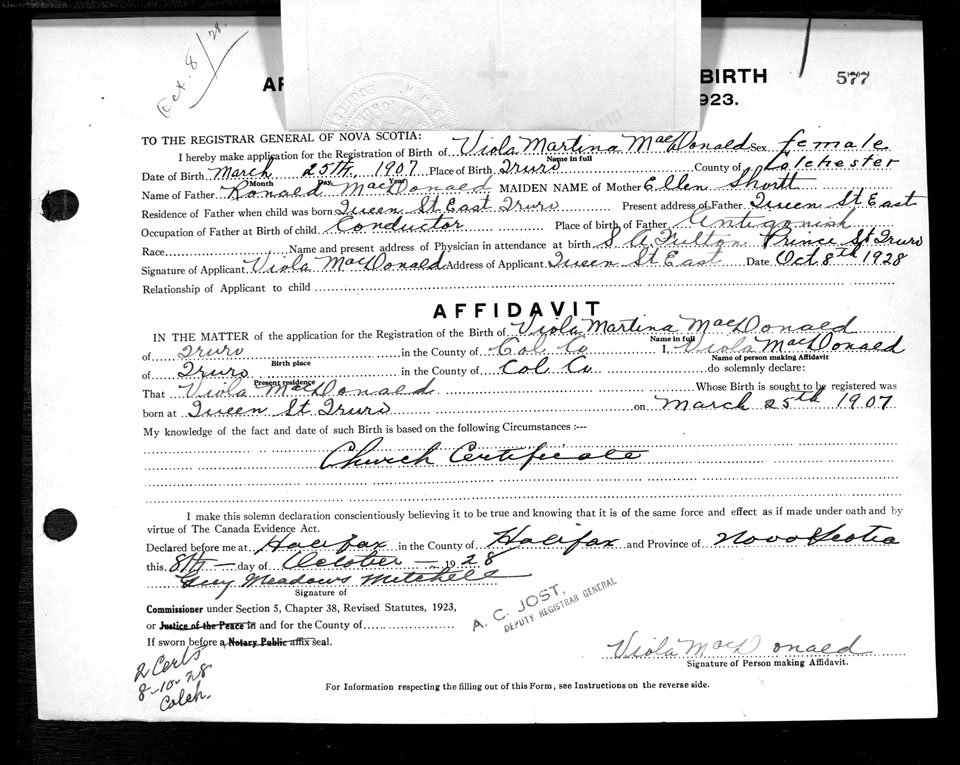 Oct. 8/28.
BIRTH 577
923.
TO THE REGISTRAR GENERAL OF NOVA SCOTIA:
I hereby make application for the Registration of Birth of Viola Martina MacDonald Sex female
Name in full
Date of Birth March 25th, 1907 Place of Birth Truro County of Colchester
Month Day Year
Name of Father Ronald MacDonald MAIDEN NAME of Mother Ellen Shortt
Residence of Father when child was born Queen St East Truro Present address of Father Queen St East
Occupation of Father at Birth of child Conductor Place of birth of Father Antigonish
Race Name and present address of Physician in attendance at birth S A. Fulton Prince St Truro
Signature of Applicant Viola MacDonald Address of Applicant Queen St East Date Oct 8th 1928
Relationship of Applicant to child
AFFIDAVIT
IN THE MATTER of the application for the Registration of the Birth of Viola Martina MacDonald
Name in full
of Truro in the County of Col. Co I, Viola MacDonald
Birth place Name of person making Affidavit
of Truro in the County of Col. Co. do solemnly declare:
Present residence
That Viola MacDonald Whose Birth is sought to be registered was
born at Queen St Truro on March 25th 1907
My knowledge of the fact and date of such Birth is based on the following Circumstances :---
Church Certificate
I make this solemn declaration conscientiously believing it to be true and knowing that it is of the same force and effect as if made under oath and by
virtue of The Canada Evidence Act.
Declared before me at Halifax in the County of Halifax and Province of Nova Scotia
this 8th day of October 1928
Guy Meadows Mitchell
Signature of
Commissioner under Section 5, Chapter 38, Revised Statutes, 1923,
or Justice of the Peace in and for the County of
If sworn before a Notary Public affix seal.
A. C. JOST,
DEPUTY REGISTRAR GENERAL
2 Certs
8-10-28
Colch.
Viola MacDonald
Signature of Person making Affidavit.
For Information respecting the filling out of this Form, see Instructions on the reverse side.